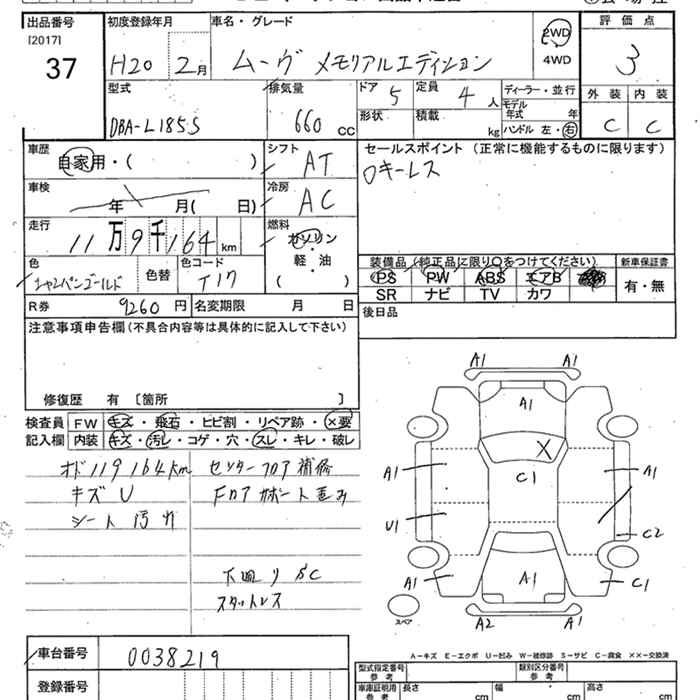 出品番号 初度登録年月 車名・グレード 評価点
[2017]
37 H20 2月 ムーヴ メモリアルエディション 2WD 4WD 3
型式 排気量 ドア 5 定員 4人 ディーラー・並行 外装 内装
モデル年式 年
DBA-L185S 660 CC 形状 積載 kg ハンドル 左・右 C C
車歴 シフト セールスポイント (正常に機能するものに限ります)
自家用・( ) AT ロキーレス
車検 冷房
年 月( 日) AC
走行 燃料
11万9千164km ガソリン
軽・油
( )
色 色替 色コード 装備品(純正品に限り○をつけてください) 新車保証書
シャンペンゴールド T17 PS PW ABS エアB
SR ナビ TV カワ 有・無
R券 9260円 名変期限 月 日 後日品
注意事項申告欄(不具合内容等は具体的に記入して下さい)
修復歴 有 〔箇所 〕
検査員 FW キズ・飛石・ヒビ割・リペア跡・×要
記入欄 内装 キズ・汚し・コゲ・穴・スレ・キレ・破レ
オド119164km センターフロア補修
キズU Fロアサポート歪み
シート汚れ
下廻りSC
スタットレス
A1 A1
A1
X
C1
A1 A1
U1
C2
A1 A1 C1
スペア
A2 A1
A-キズ E-エクボ U-凹み W-補修跡 S-サビ C-腐食 ××-交換済
車台番号 0038219
型式指定番号 参考 類別区分番号 参考
登録番号 車庫証明用 参考 長さ cm 幅 cm 高さ cm